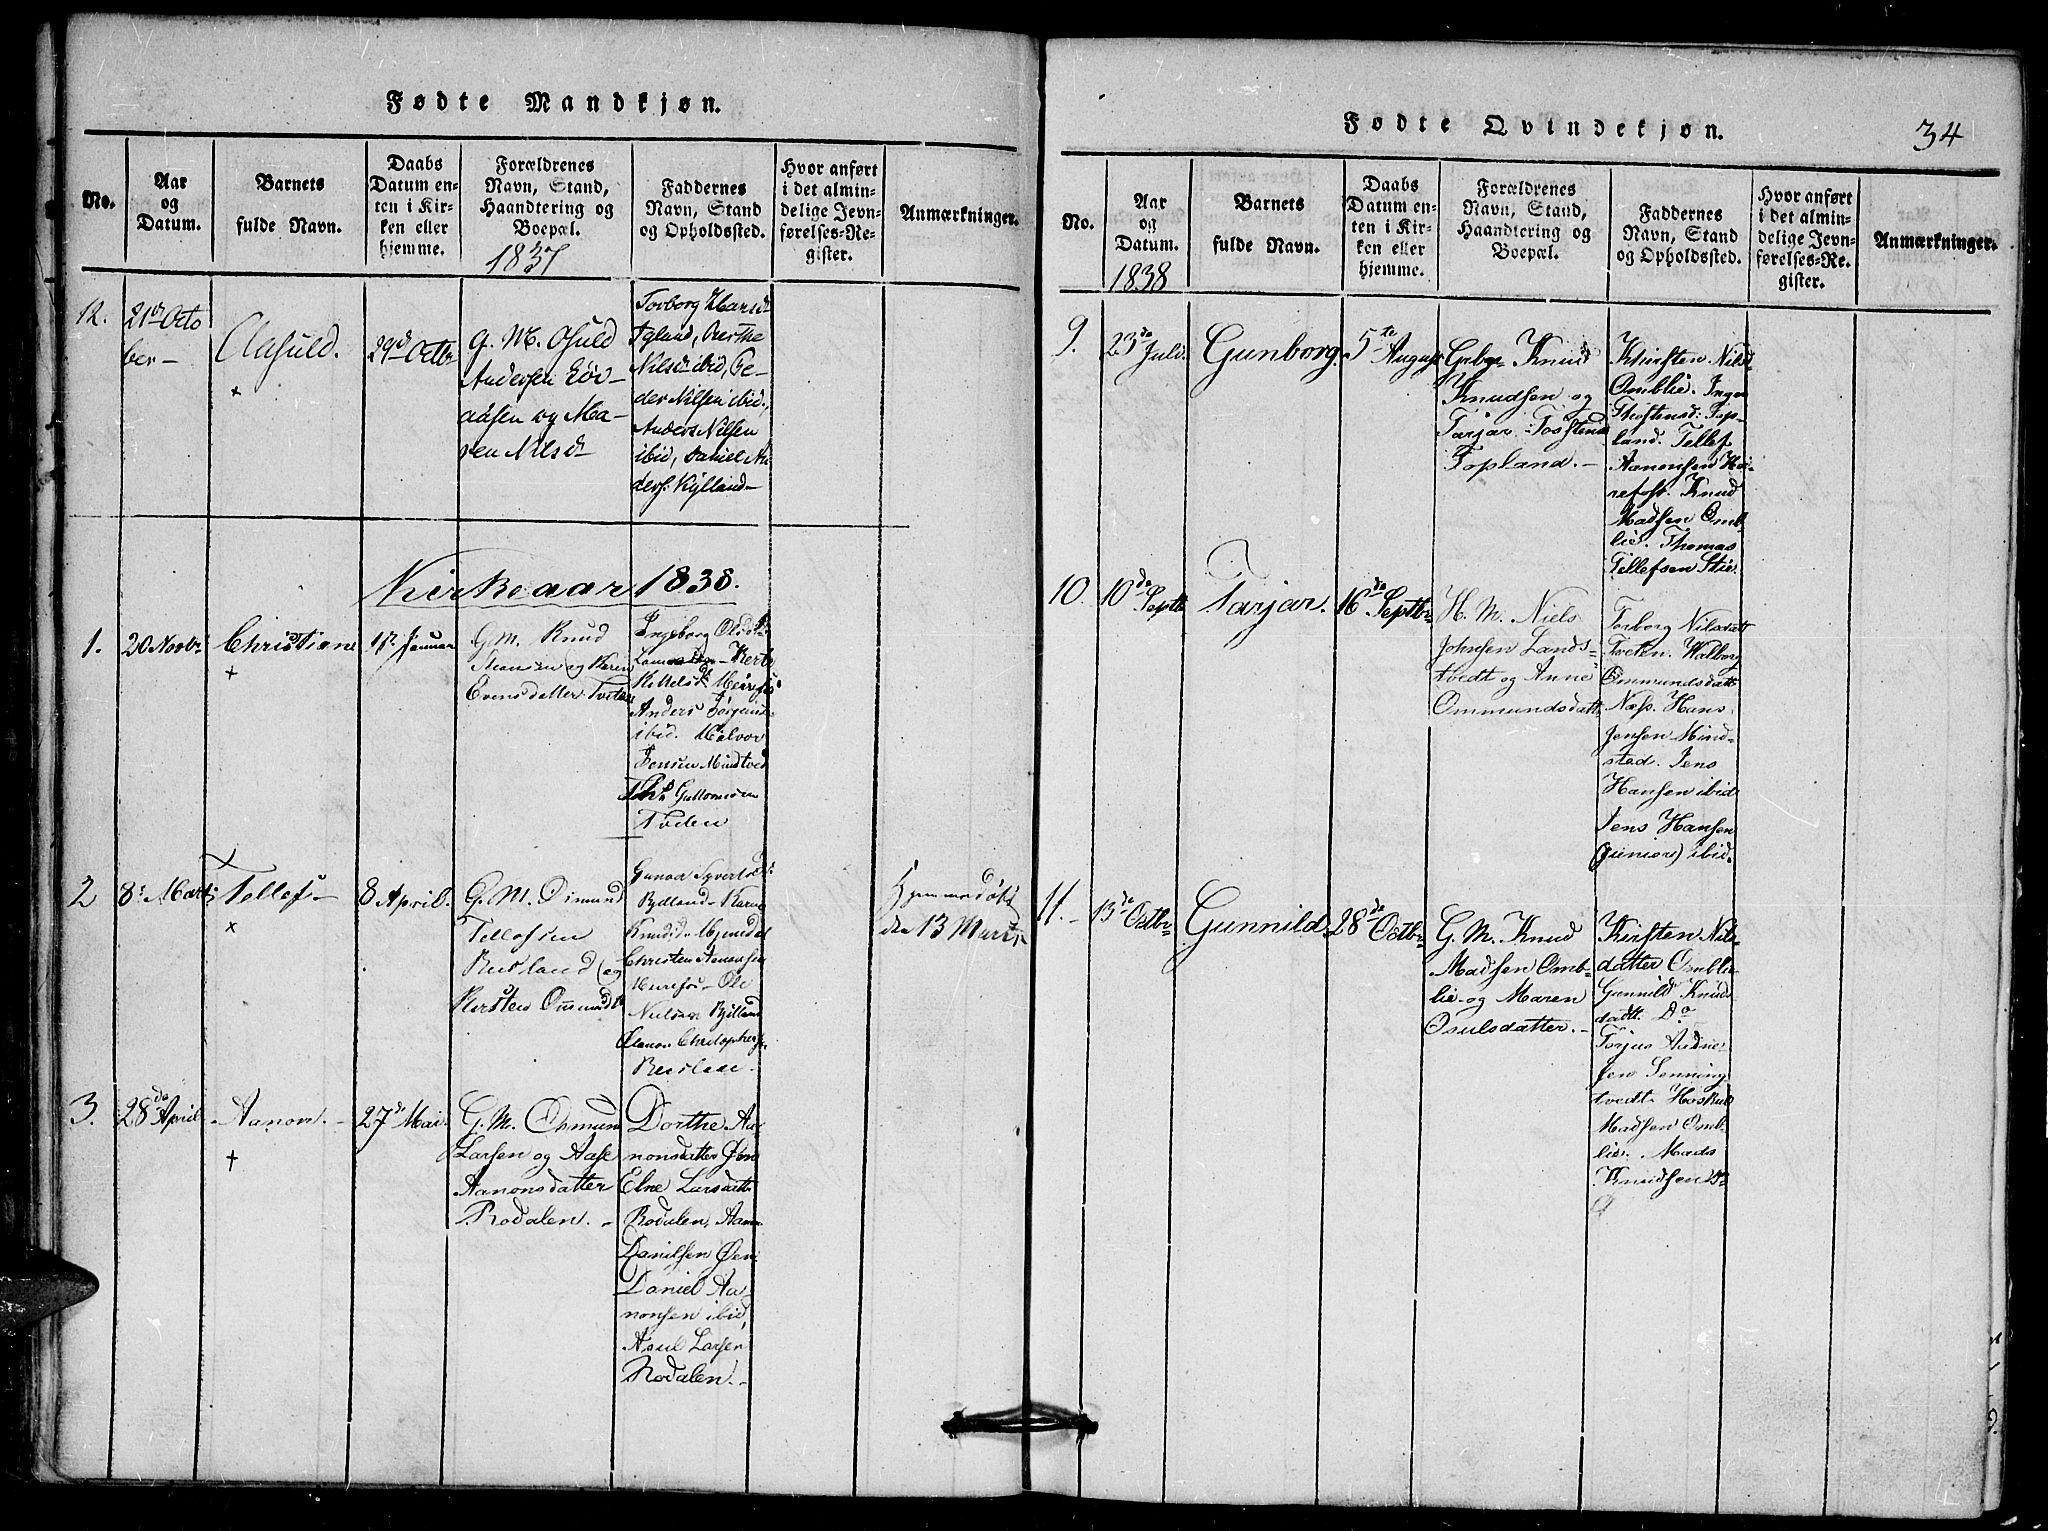 Fødte Mandkjøn.
No.
Aar
og
Datum.
Barnets
fulde Navn.
Daabs
Datum en-
ten i Kir-
ken eller
hjemme.
Forældrenes
Navn, Stand,
Haandtering og
Boepæl.
1837
Faddernes
Navn, Stand
og Opholdssted.
Hvor anført
i det almin-
delige Jevn-
førelses-Re-
gister.
Anmærkninger.
12.
21de Octo
ber -
Aasuld.
29de Octbr
G. M. Osuld
Andersen Løv-
aasen og Ma-
ren Nilsd
Torborg Larsd
Igland, Berthe
Nilsd ibid, Pe-
der Nilsen ibid,
Anders Nilsen
ibid, Daniel An
ders. Kylland-
Kirkeaar 1838.
1.
20 Novbr
Christian
1ste Januar
G. M. Knud
og Karen
Evensdatter Tveten
Ingeborg Olsd
Kittelsd Heirefos
Anders Jørgens
ibid. Halvor
Jensen Mindtved
Tveten
2
8. Marts
Tellef -
8 April.
G. M. Osmund
Tellefsen
Rusland og
Kirsten Ommundsd
Gunor Syvertsd
Bylland - Karen
Knudsd Mjendal
Christen Aanonsen
Hurefos - Ole
Nielsen Bylland
Aanon Christophers
Rusland.
Hjemmedøbt
den 13 Marts
3.
28de April
Aanon. -
27de Mai.
G. M. Osmund
Larsen og Aase
Aanonsdatter
Rodalen. -
Dorthe Aa-
nonsdatter Øen
Elne Larsdatt
Rodalen, Aanon
Danielsen Øen
Daniel Aa-
nonsen ibid,
Asul Larsen
Rodalen. -
Fødte Qvindekjøn.
34
No.
Aar
og
Datum.
1838
Barnets
fulde Navn.
Daabs
Datum en-
ten i Kir-
ken eller
hjemme.
Forældrenes
Navn, Stand,
Haandtering og
Boepæl.
Faddernes
Navn, Stand
og Opholdssted.
Hvor anført
i det almin-
delige Jevn-
førelses-Re-
gister.
Anmærkninger.
9.
23de Juli.
Gunborg.
5te August
Grbg Knud
Knudsen og
Tarjar Tostensd
Topland. -
Kirsten Nilsd
Omblie. Inger
Thostensd: Top-
land. Tellef
Aanonsen Hei-
refos. Knud
Madsen Omb-
lie. Thomas
Tellefsen Stie.
10.
10de Septb
Tarjar.
16de Septbr
H. M. Niels
Johnsen Lands-
tvedt og Anne
Ommundsdatt.
Torborg Nilsdatt
Tveten. Walborg
Ommundsdatt
Næs. Hans
Jensen Mind-
sted. Jens
Hansen ibid
Jens Hansen
(junior) ibid.
11.
13de Octbr
Gunnild
28de Octbr
G. M. Knud
Madsen Omb-
lie og Maren
Osulsdatter. -
Kirsten Nils-
datter Omblie
Gunnild Knuds-
datt. Do
Torjus Aadne-
sen Senning
tvedt Høskul
Madsen Omb-
lie. Mads
Knudsen Do